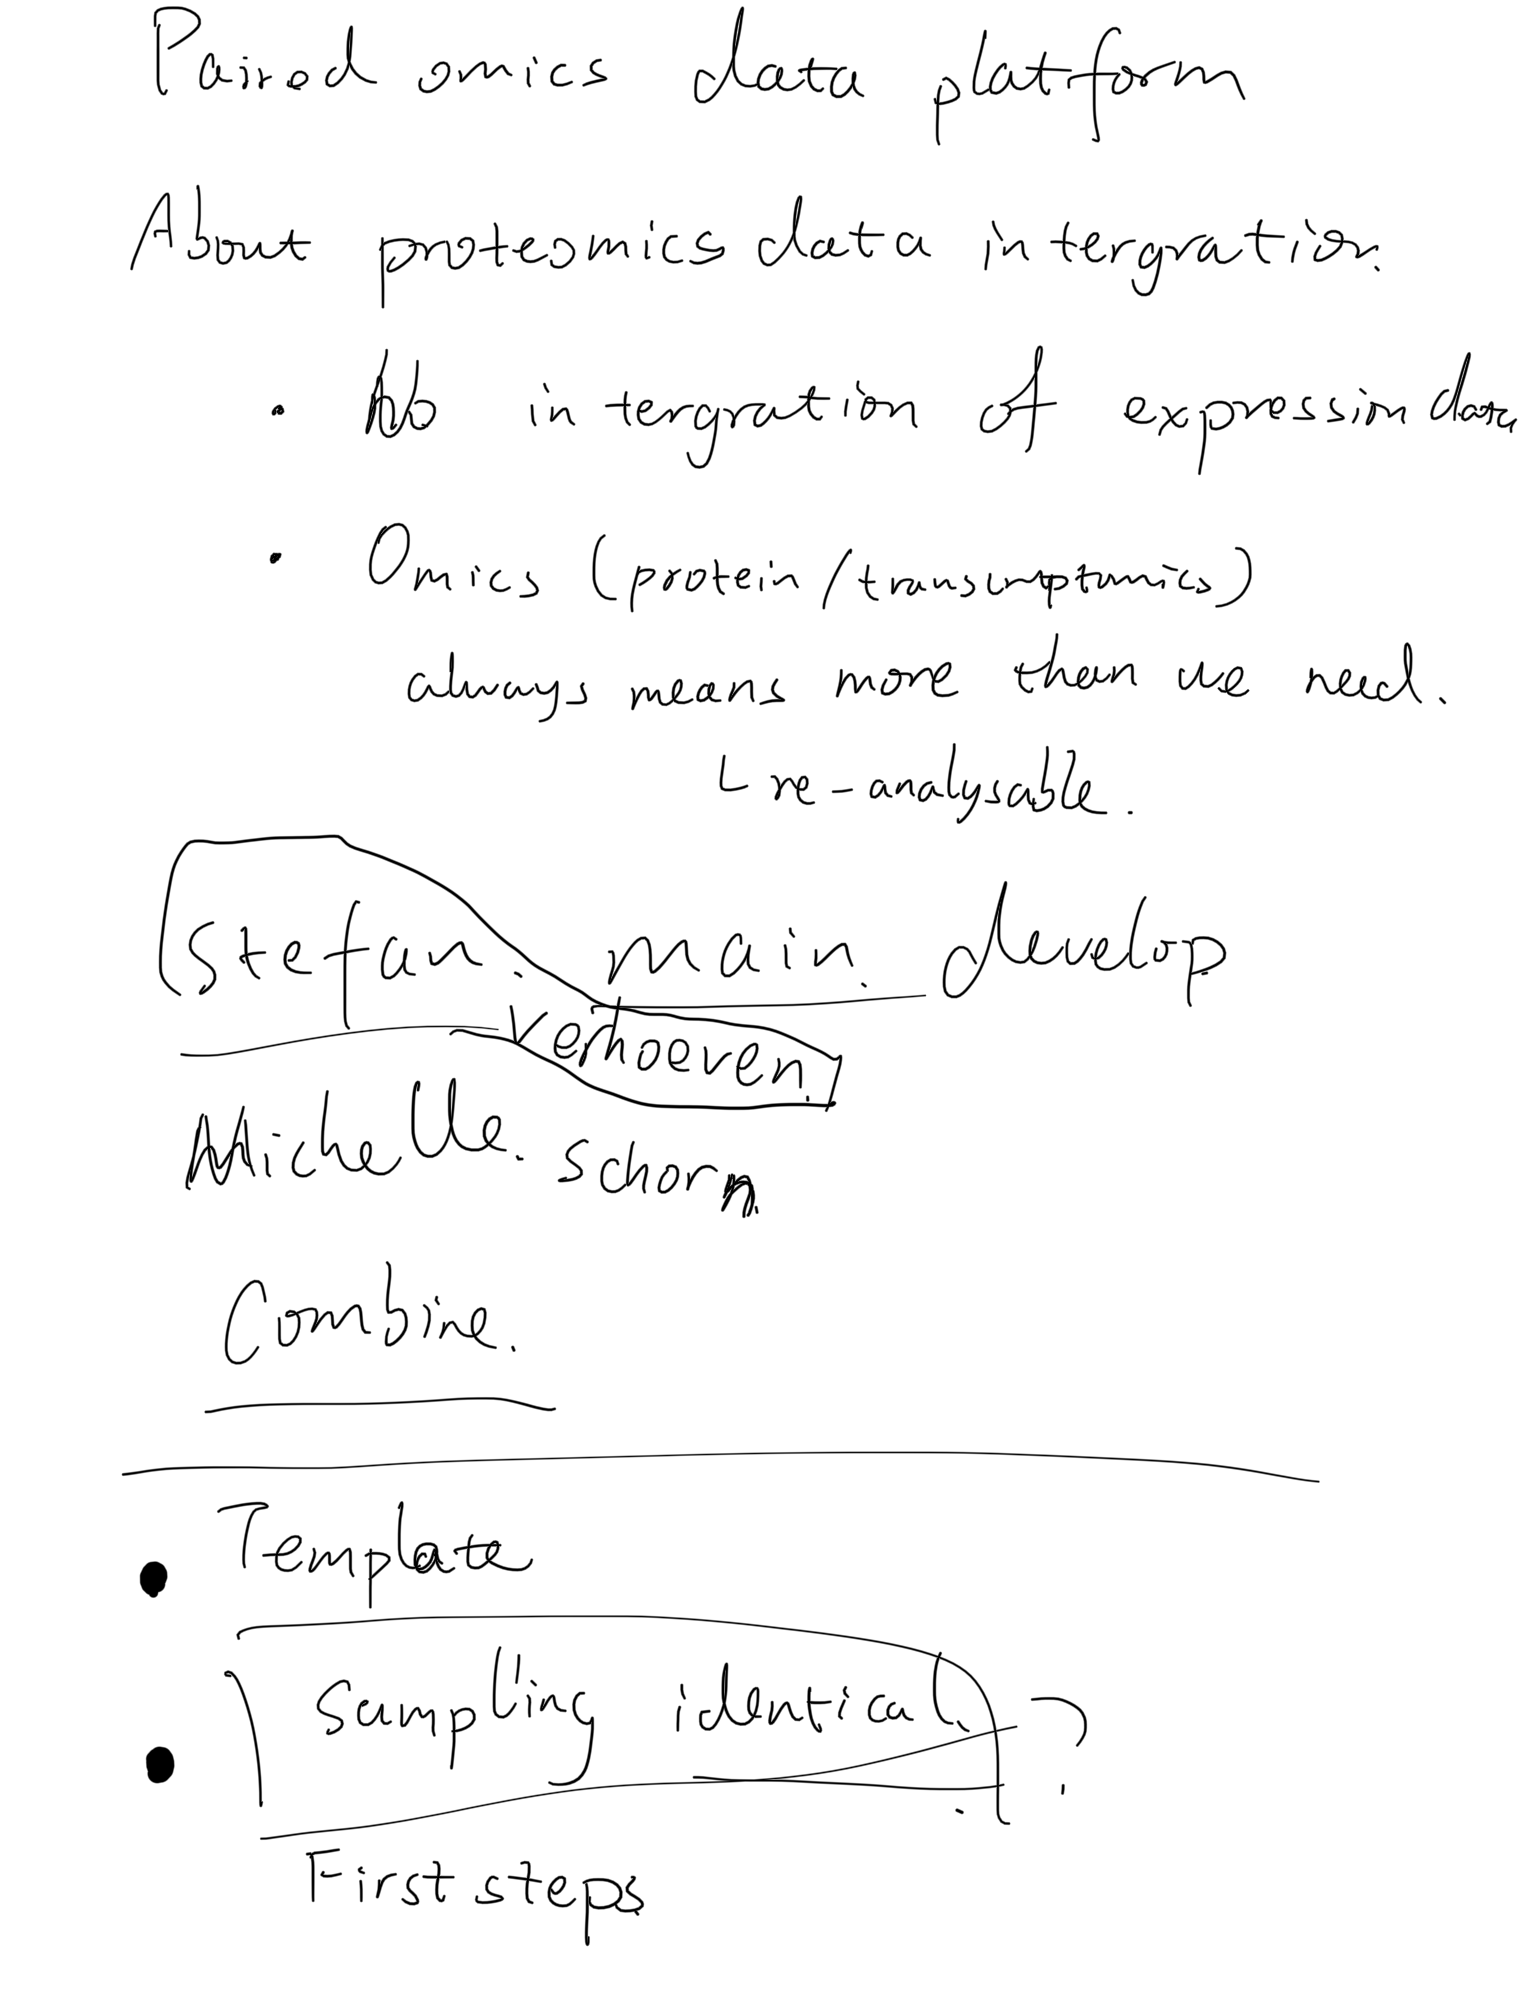 Paired omics data platform
About proteomics data intergration.
· No intergration of expression data
· Omics (protein/transcriptomics)
always means more than we need.
re-analysable.
Stefan. main. develop
Verhoeven.
Michelle. Schorn.
Combine.
• Template
• Sampling identical. ?
First steps